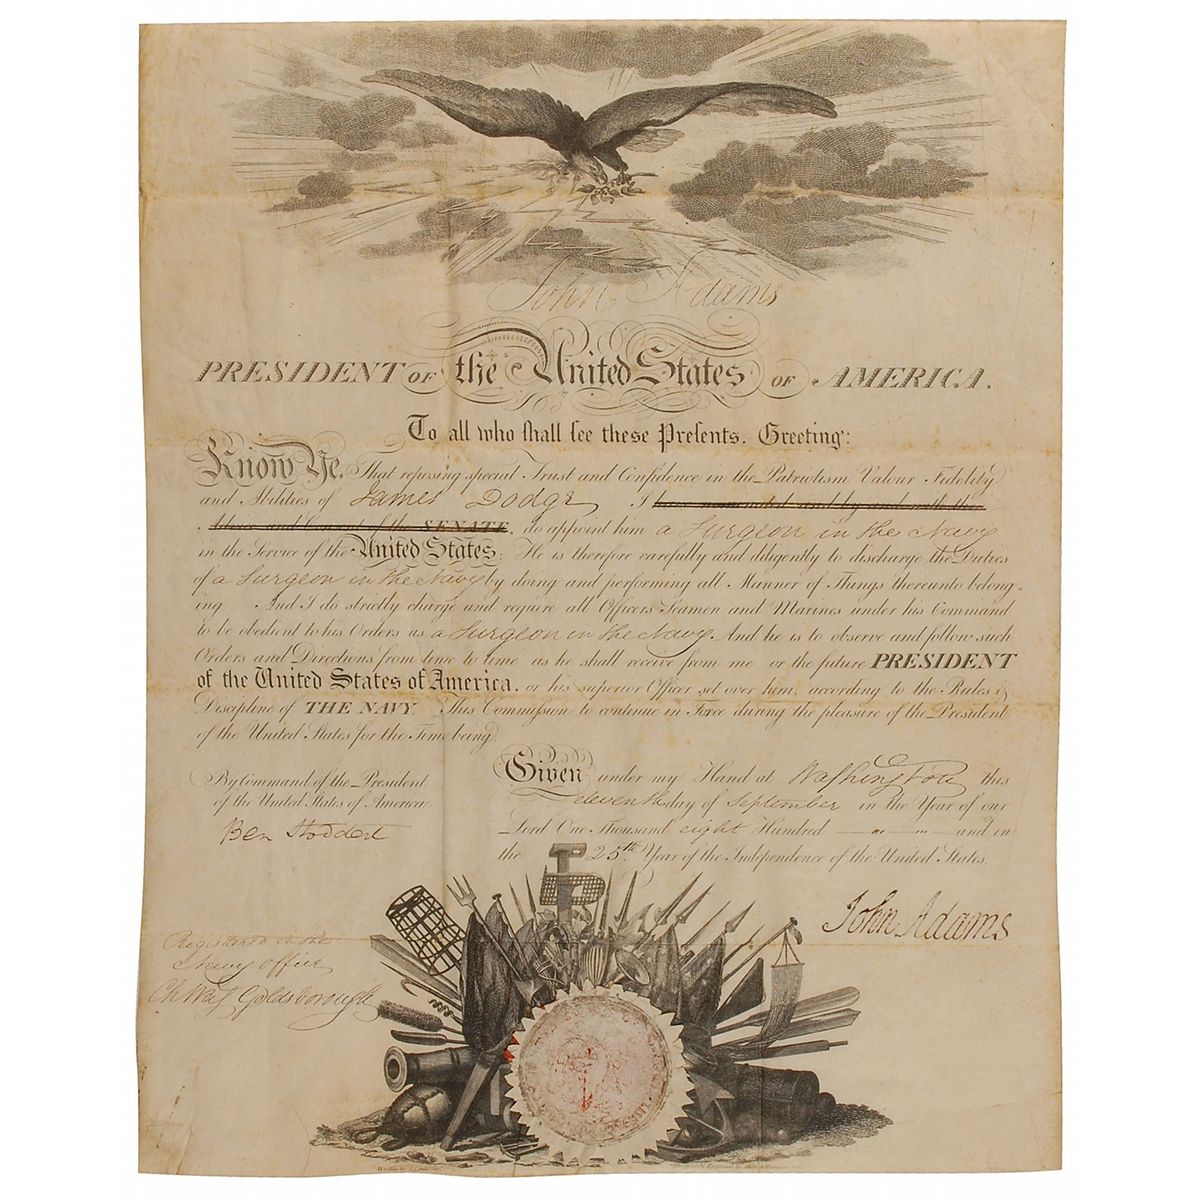 John Adams
PRESIDENT OF the United States OF AMERICA.
To all who shall see these Presents, Greeting:
Know Ye, That reposing special Trust and Confidence in the Patriotism Valour Fidelity
and Abilities of James Dodge, I have nominated and by and with the
Advice and Consent of the SENATE, do appoint him a Surgeon in the Navy
in the Service of the United States: He is therefore carefully and diligently to discharge the Duties
of a Surgeon in the Navy by doing and performing all Manner of Things thereunto belong-
ing. And I do strictly charge and require all Officers Seamen and Marines under his Command
to be obedient to his Orders as a Surgeon in the Navy. And he is to observe and follow such
Orders and Directions from time to time as he shall receive from me or the future PRESIDENT
of the United States of America, or his superior Officer set over him, according to the Rules &
Discipline of THE NAVY. This Commission to continue in Force during the pleasure of the President
of the United States for the Time being
Given under my Hand at Washington this
Eleventh day of September in the Year of our
Lord One Thousand eight Hundred and in
the 25th Year of the Independence of the United States.
By Command of the President
of the United States of America
Ben Stoddert
John Adams
Registered in the
Navy office
Ch W Goldsborough